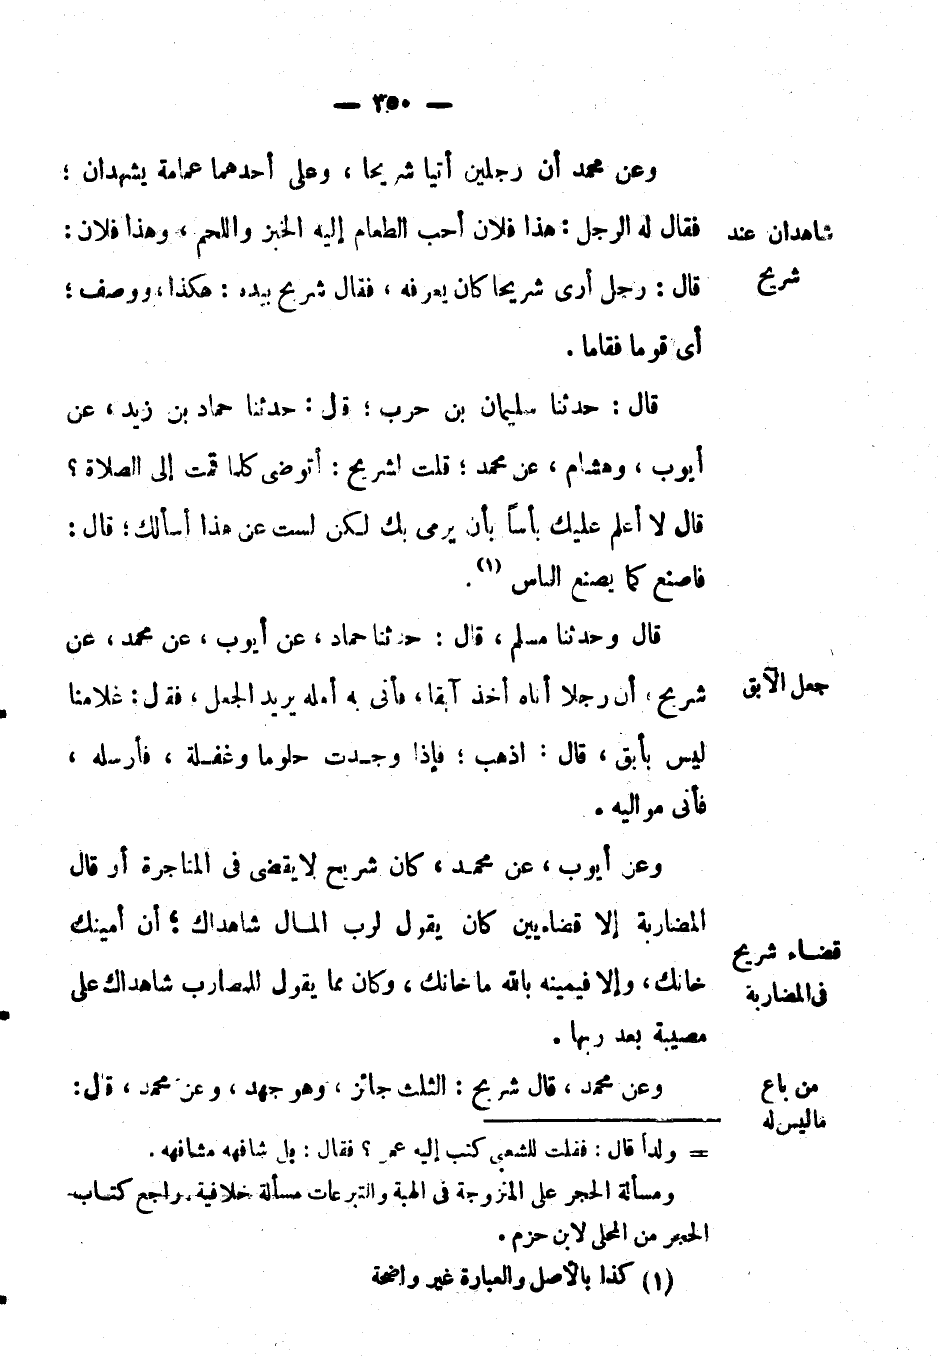 — ٣٥٠ —
وعن محمد أن رجلين أتيا شريحا ، وعلى أحدهما عمامة يشهدان ؛
شاهدان عند
شريح
فقال له الرجل : هذا فلان أحب الطعام إليه الخبز واللحم ، وهذا فلان :
قال : رجل أرى شريحا كان يعرفه ، فقال شريح بيده : هكذا ، ووصف ؛
أى قوما فقاما .
قال : حدثنا سليمان بن حرب ؛ قال : حدثنا حماد بن زيد ، عن
أيوب ، وهشام ، عن محمد ؛ قلت لشريح : أتوضى كلما قمت إلى الصلاة ؟
قال لا أعلم عليك بأساً بأن يرمى بك لكن لست عن هذا أسألك ؛ قال :
فاصنع كما يصنع الناس (١) .
قال وحدثنا مسلم ، قال : حدثنا حماد ، عن أيوب ، عن محمد ، عن
جعل الآبق
شريح ، أن رجلا أتاه أخذ آبقا ، فأتى به أهله يريد الجعل ، فقال : غلامنا
ليس بأبق ، قال : اذهب ؛ فإذا وجدت حلوما وغفلة ، فأرسله ،
فأتى مواليه .
وعن أيوب ، عن محمد ، كان شريح لايقضى فى المتاجرة أو قال
المضاربة إلا قضاءيين كان يقول لرب المال شاهداك ؛ أن أمينك
قضاء شريح
فى المضاربة
خانك ، وإلا فيمينه بالله ما خانك ، وكان مما يقول للمضارب شاهداك على
مصيبة بعد ربها .
وعن محمد ، قال شريح : الثلث جائز ، وهو جهد ، وعن محمد ، قال :
من باع
ماليس له
= ولداً قال : فقلت للشعبى كتب إليه عمر ؟ فقال : بل شافهه مشافهه .
ومسألة الحجر على المتزوجة فى الهبة والتبرعات مسألة خلافية ، راجع كتاب
الحجر من المحلى لابن حزم .
(١) كذا بالأصل والعبارة غير واضحة